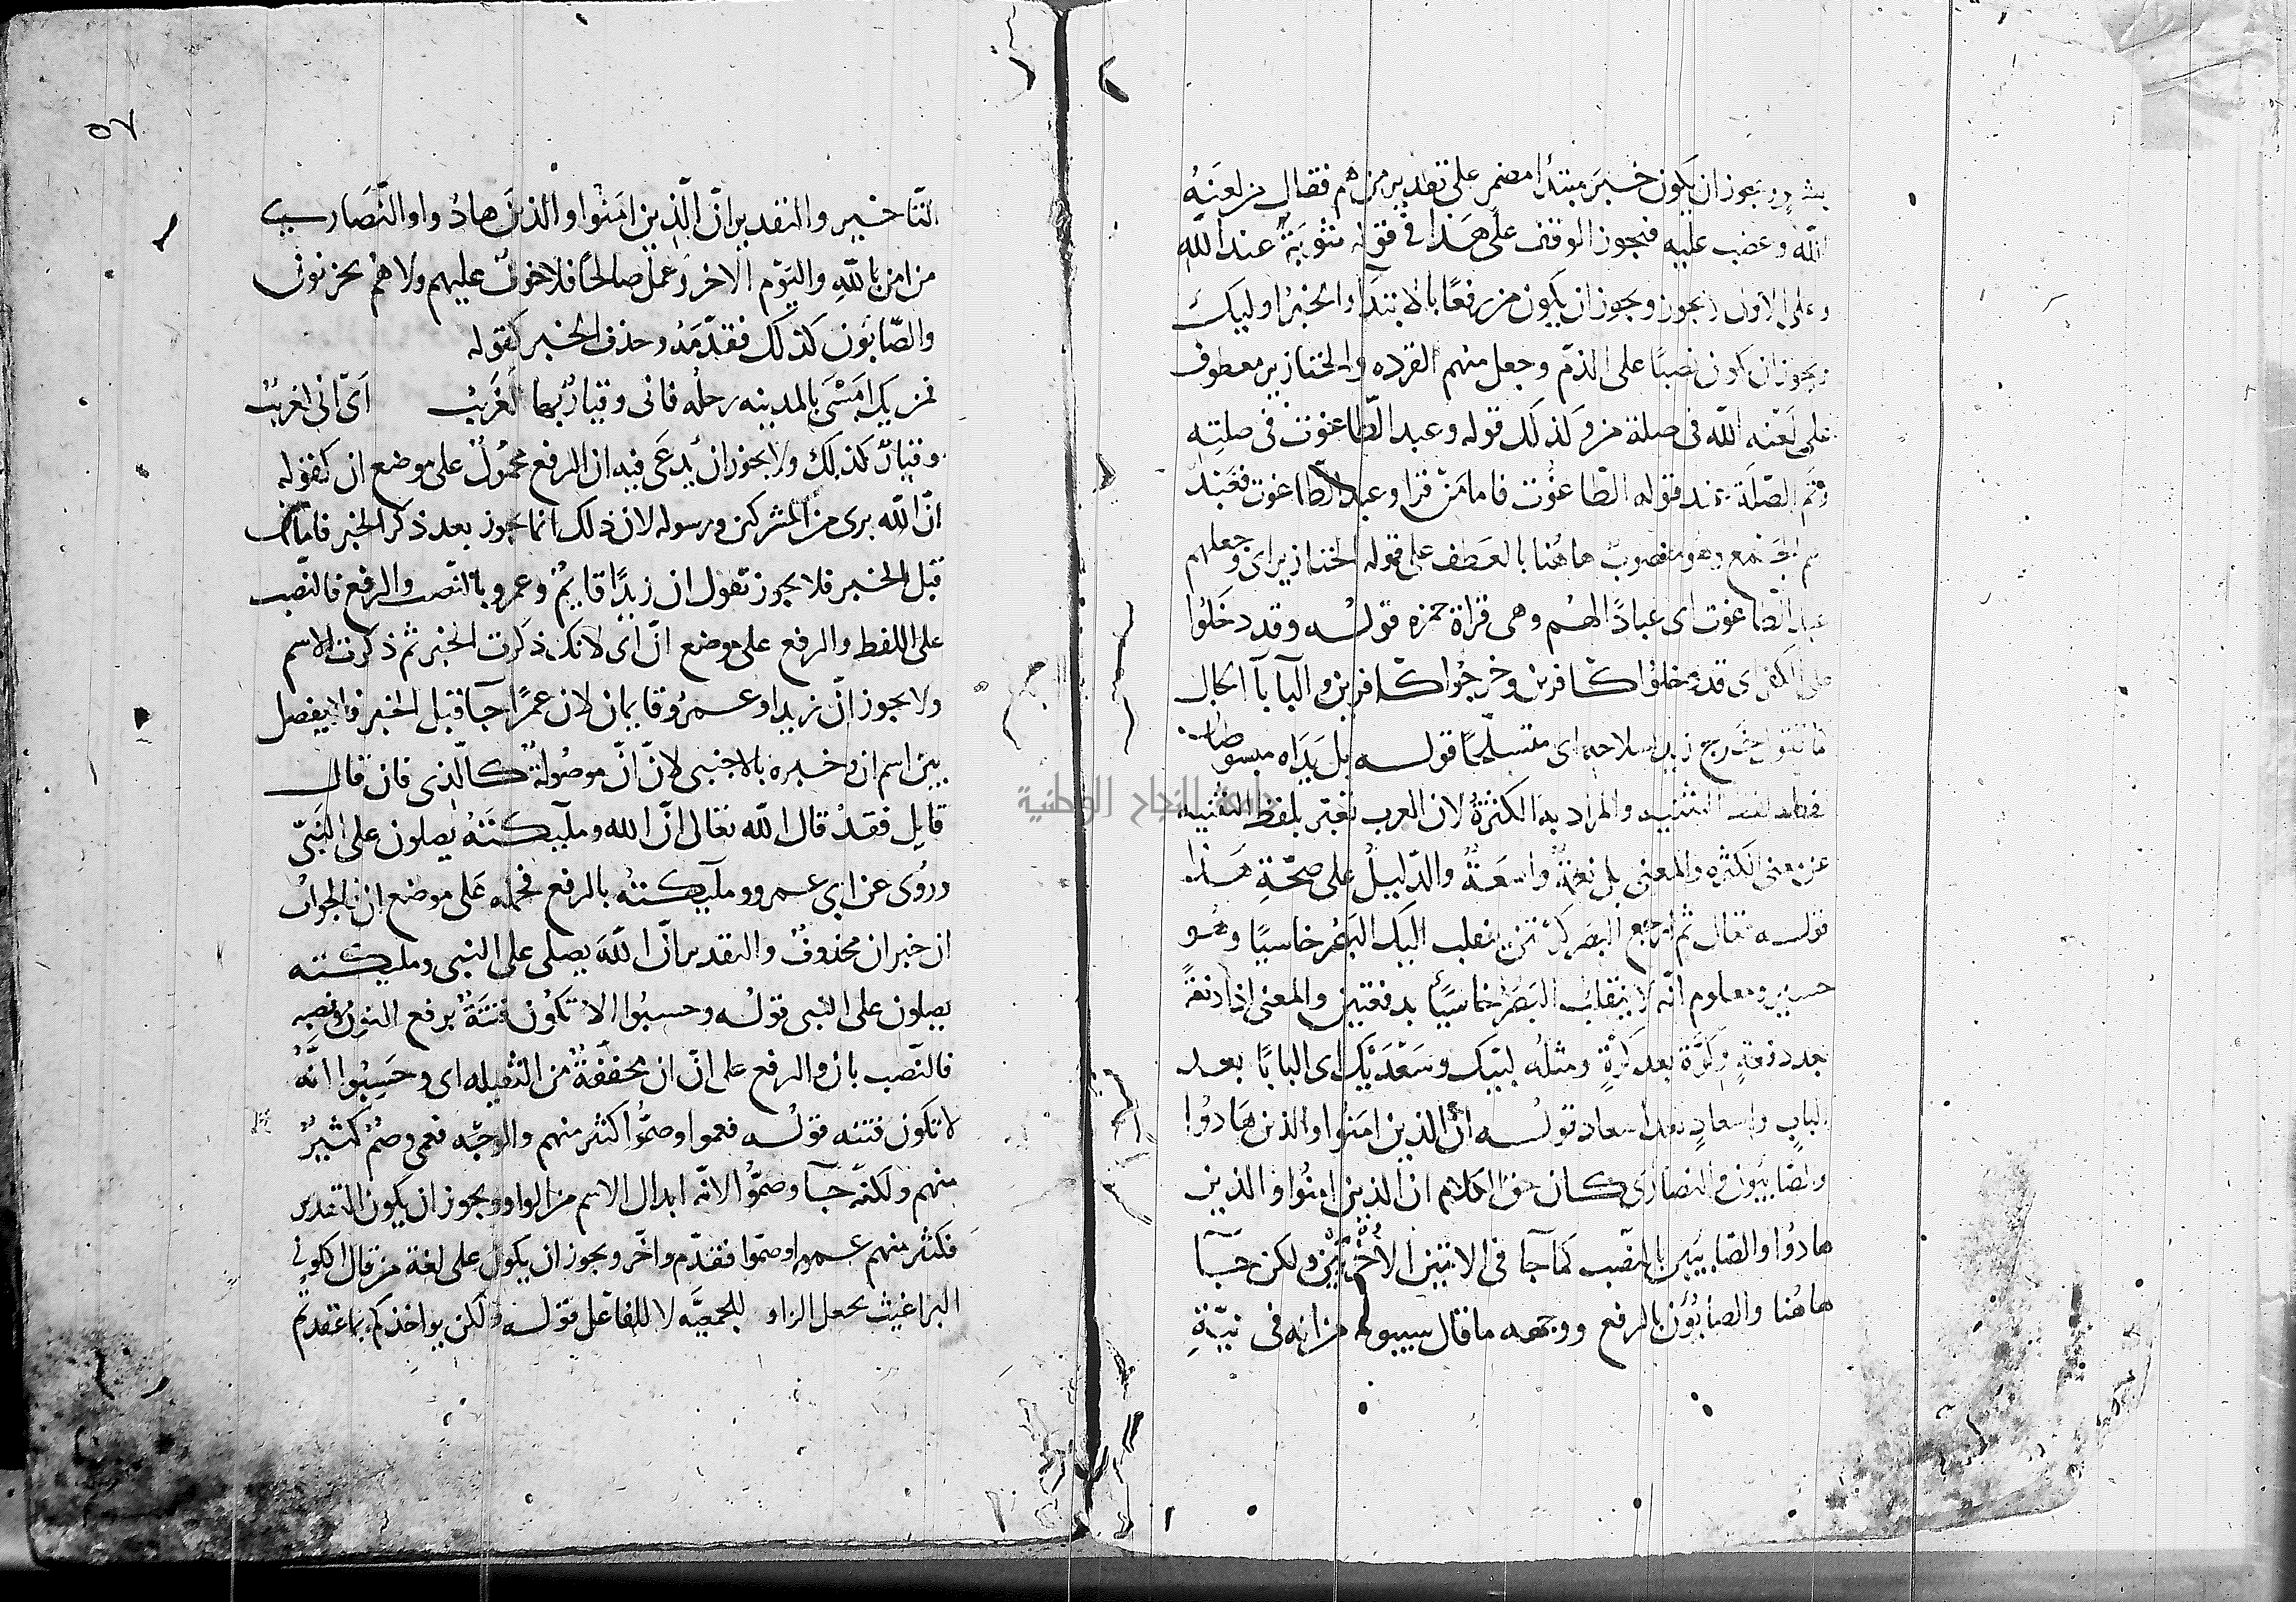 بشر ويجوز ان يكون خبر مبتدأ مضمر على تقدير من هم فقال من لعنه
الله وغضب عليه فيجوز الوقف على هذا في قوله مثوبة عند الله
وعلى الاول لا يجوز ويجوز ان يكون من رفعًا بالابتدآء والخبر اوليك
ويجوز ان يكون نصبًا على الذم وجعل منهم القرده والخنازير معطوف
على لعنه الله في صلة من وكذلك قوله وعبد الطاغوت في صلتِه
وتم الصّلَة عند قوله الطاغوت فاما مَن قرا وعبد الطاغوت فعَبُد
اسم الجَمع وهو منصوب هاهُنا بالعَطف على قوله الخنازير اى وجعلهم
عبد الطاغوت اى عبادًا لهُم وهى قراة حمزه قولـه وقد دخَلُوا
على الكفر اى قد دخلوا كافرين وخرجُوا كافرين والبا بآ الحال
كما تقول خَرج زيد بسلاحه اى متسلّحًا قولـه بل يَدَاه مبسوطتان
لفظه لفظ التثنيه والمراد به الكثرةُ لان العرب تعبّر بلفظ التثنيه
عن معنى الكثره والمعنى بل نعمَةٌ واسعَةٌ والدّليلُ على صحّةِ هَذا
قولـه تعالى ثم ارجع البصر كرّتين ينقلب اليك البصَر خاسيًا وهُو
حسير ومعلوم انّه لا ينقلبُ البَصَر خاسيًا بدفعتين والمعنى اذا دفعةً
بعد دفعةٍ وكرَّة بعد كَرّةٍ ومثلُه لبّيك وسَعْدَيْك اى البابًا بعد
البابٍ واسعادٍ بعد اسعاد قولـه ان الذين امَنُوا والذين هَادُوا
والصّابيون والنصَارَى كان حق الكلام ان الذين امنُوا والذين
هادُوا والصّابيين بالنصْب كما جآ في الايتين الاُخْريَيْن ولكن جَآ
هاهُنا والصابُون بالرفع ووجهه ما قال سيبويه من انه في نيّةِ
٥٧
التّاخير والتقدير انّ الّذين امَنُوا والذين هادُوا والنّصَارى
من امن بالله واليَوْم الاخر وَعمل صالحًا فلا خوفٌ عليهم ولا هُم يحزنون
والصّابُون كذلك فقدّمَهُ وحذف الخبر كقوله
فمن يك امَسْى بالمدينه رحلُه فانى وقيارٌ بها لغَريبُ اَى انى لغريبٌ
وقيارٌ كذلك ولا يجوز ان يُدعَى فيه ان الرفع محمُولٌ على موضع ان كقوله
انّ الله برى من المشركين ورسوله لان ذلك انما يجوز بعد ذكر الخبر فامّا
قبل الخبر فلا يجوز تقول ان زيدًا قايمٌ وعمرو بالنّصب والرفع فالنّصب
على اللفظ والرفع على موضع انّ اى لانك ذكرت الخبر ثم ذكرت الاسم
ولا يجوز انّ زيدا وعمرُو قايمان لان عمرًا جآ قبل الخبر فلا يفصل
بين اسم ان وخبره بالاجنبى لانّ انّ موصُولةٌ كالّذى فان قال
قايل فقد قال الله تعالى انّ الله وملآيكتَهُ يصلون على النَبيّ
ورُوى عن ابى عمرو وملآيكتُه بالرفع فحمله على موضع ان فالجوابُ
ان خبر ان محذوفٌ والتقدير انّ اللهَ يصلى على النبى ومليكته
يصلون على النبى قولُـه وحسبُوا الا تكون فتنَةٌ برفع النون ونصبِه
فالنّصب بان والرفع على انّ ان مخففَةٌ من الثقيله اى وحَسِبُوا انَّهُ
لا تكون فتنه قولُـه فعموا وصمُّوا كثير منهم والوجه فعمى وصُمّ كثيرٌ
منهم ولكنّه جآ وصمُّوا لانّه ابدال الاسم من الواو ويجوز ان يكون التقدير
فكثير منهم عموا وصمّوا فقدّم واخّر ويجوز ان يكون على لغة من قال اكلوني
البراغيث بجعل الواو للجمعيَّه لا للفاعل قولُـه ولكن يواخذكم بما عقدتم
جامعة النجاح الوطنية